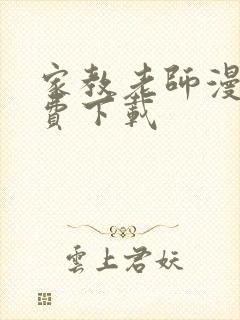 家教老師漫
費下載
雲上君妖